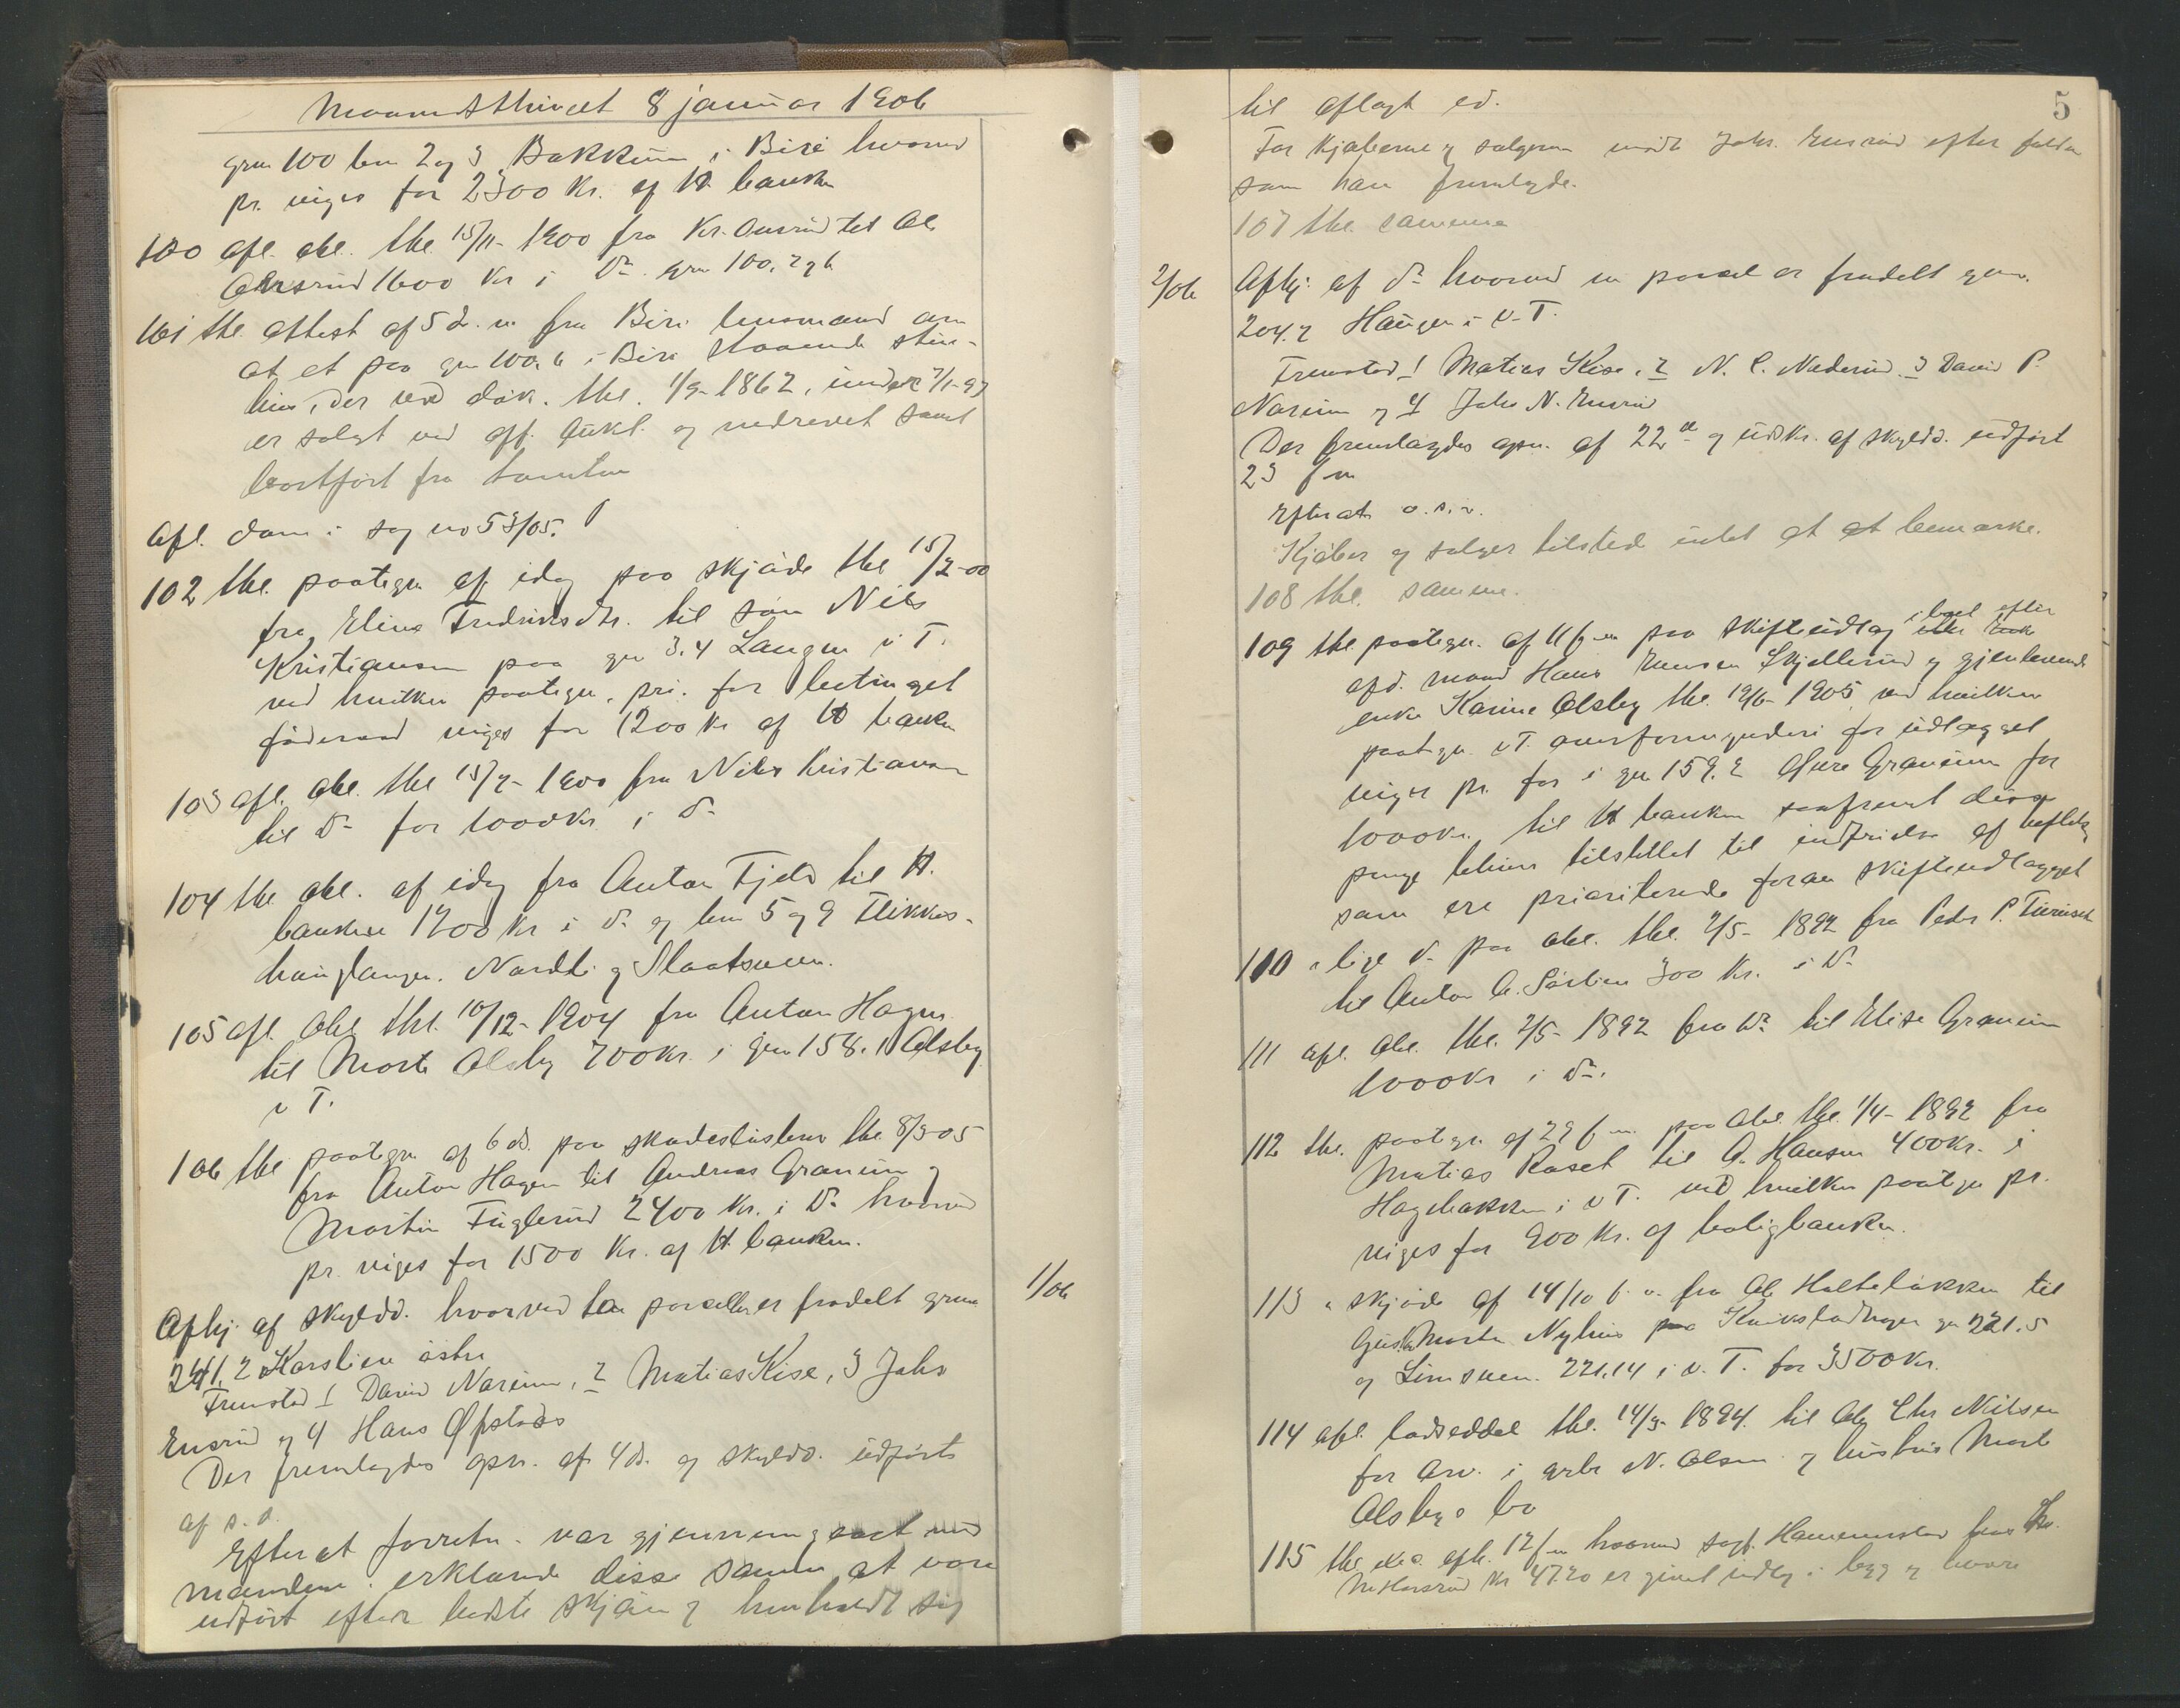 Maanedsthinget 8 januar 1906
grn 100 brn 2 og 3 Bakkum i Biri hvorved
pr. viges for 2300 Kr. af H banken
100 afl. obl. thl. 15/11-1900 fra Kr. til Ol.
1600 Kr i do grn 100, 2 og 6
101 thl. attest af 5 d. m. fra Biri lensmand om
at et paa grn 100,6 i Biri staaende
der ved dok. thl. 1/9-1862, 7/1-97
er solgt ved off. aukt. og nedrevet samt
bortfört fra tomten
Afl. dom i sag no 53/05.
102 thl. paategn af idag paa skjöde thl 15/2-00
fra Eline Fredriksdtr. til sön Nils
Kristiansen paa gn 3.4 Langen i T.
ved hvilken paategn. pri. for betinget
föderaad viges for 1200 Kr af H banken
103 afl. obl. thl 15/2-1900 fra Nils Kristiansen
til do for 1000 Kr i do
104 thl obl. af idag fra Anton Fjeld til H.
banken 1200 Kr i do og brn 5 og 9 Flikkes-
hauglangen. Nordli og Slaatsveen.
105 afl. obl thl. 10/12-1904 fra Anton Hagen
til Morts Alsby 700 Kr. i grn 158.1 Alsby
v T.
106 thl paategn af 6 ds. paa skadeslösbrev thl 8/3-05
fra Anton Hagen til Andreas Granum og
Martin Fuglerud 2400 Kr. i do hvorved
pr. viges for 1500 Kr. af H. banken.
Afhj. af skyldd. hvorved en parceller er fradelt grn 1/06
241,2 Karslien östre
Fremstod 1 David Narum, 2 Matias Kise, 3 Johs
Ensrud og 4 Hans Øfstaas
Der fremlagdes opn. af 4 ds. og skyldd. udfört
af s. d.
Efterat forretn. var gjennemgaaet med
mændene erklærede disse samme at være
udfört efter bedste skjön og henholdt sig

5
til aflagt ed.
For kjöberne og sælgeren mödte Johs. Ensrud efter fuldm
som han fremlagde.
107 thl. samme
2/06 Afhj. af do hvorved en parcel er fradelt grn.
204.2 Haugen i V. T.
Fremstod 1 Matias Kise, 2 N. C. Naderud 3 David P.
Narum og 4 Johs N. Ensrud
Der fremlagdes opn. af 22de og udskr. af skyldd. udfört
23 f m
Efterat o. s. v.
Kjöber og sælger tilstede intet at at bemærke.
108 thl. samme.
109 thl paategn. af 11 f m paa skifteudlæg i boet efter
afd. mand Hans Skjellerud og gjenlevende
enke Karine Alsby thl. 19/6-1905, ved hvilken
paategn. v T. overformynderi for udlægget
viger pr. for i grn 159.2 Øvre Granum for
1000 Kr. til H banken saafremt disse
penge blive tilstillet til indfrielse af heftelser
som ere prioriterede foran skifteudlægget
110 " lige do paa obl. thl. 2/5-1892 fra Peder P.
til Anton A. 300 Kr. i do
111 afl. obl. thl. 2/5-1892 fra do til Elise Granum
1000 Kr i do.
112 thl. paategn af 29 f m. paa obl thl. 1/4-1892 fra
Matias Roset til A. Hansen 400 Kr. i
Hagebakken i v T. ved hvilken paategn pr.
viges for 900 Kr. af boligbanken.
113 " skjöde af 14/10 f. a. fra Ole Holtelökken til
Morten Nyhus paa gn 221.5
og 221.14 i v. T. for 3500 Kr.
114 afl. lodseddel thl. 14/9-1894 til Ole Chr Nilsen
for Arv. i grbr N. Olsen og hustru Marte
Alsbys bo
115 thl exe. afh. 12 f m hvorved sagf. Hammerstad hos Kr.
Kr 47.20 er givet udlæg i bygg og havre